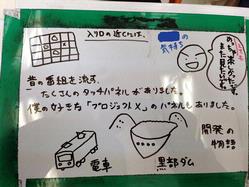 入り口の近くには、
昔の番組を流す、
たくさんのタッチパネルがありました。
僕の好きな「プロジェクトX」のパネルもありました。
の
気持ち
また見たいな
電車
黒部ダム
開発の
物語